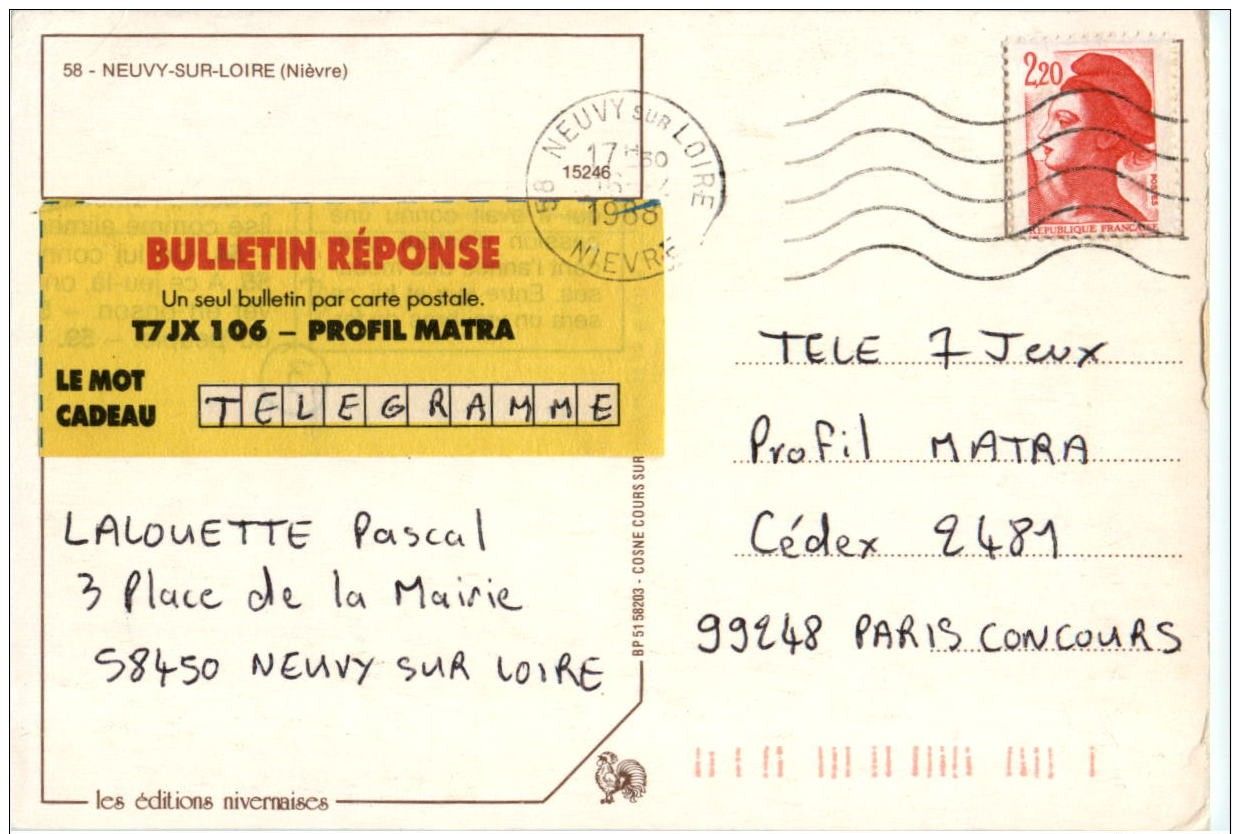 58 - NEUVY-SUR-LOIRE (Nièvre)
58 NEUVY SUR LOIRE
17 H
15246
1988
NIEVRE
2,20
POSTES
REPUBLIQUE FRANCAISE
BULLETIN RÉPONSE
Un seul bulletin par carte postale.
T7JX 106 – PROFIL MATRA
LE MOT
CADEAU
TELEGRAMME
LALOUETTE Pascal
3 Place de la Mairie
58450 NEUVY SUR LOIRE
BP 51 58203 - COSNE COURS SUR
TELE 7 Jeux
Profil MATRA
Cédex 2481
99248 PARIS CONCOURS
les éditions nivernaises